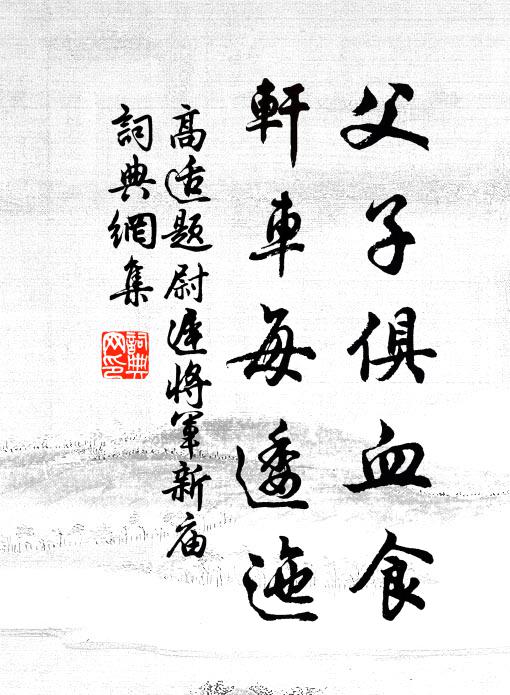 父子俱血食
軒車每逶迤
高适题尉遲将軍新庙
詞典網集
詞典网印